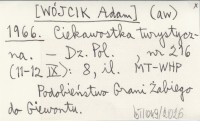 [WÓJCIK Adam] (aw)
1966. Ciekawostka turystycz-
na. — Dz. Pol., nr 216
(11-12 IX): 8, il. MT-WHP
Podobieństwo Grani Żabiego
do Giewontu.